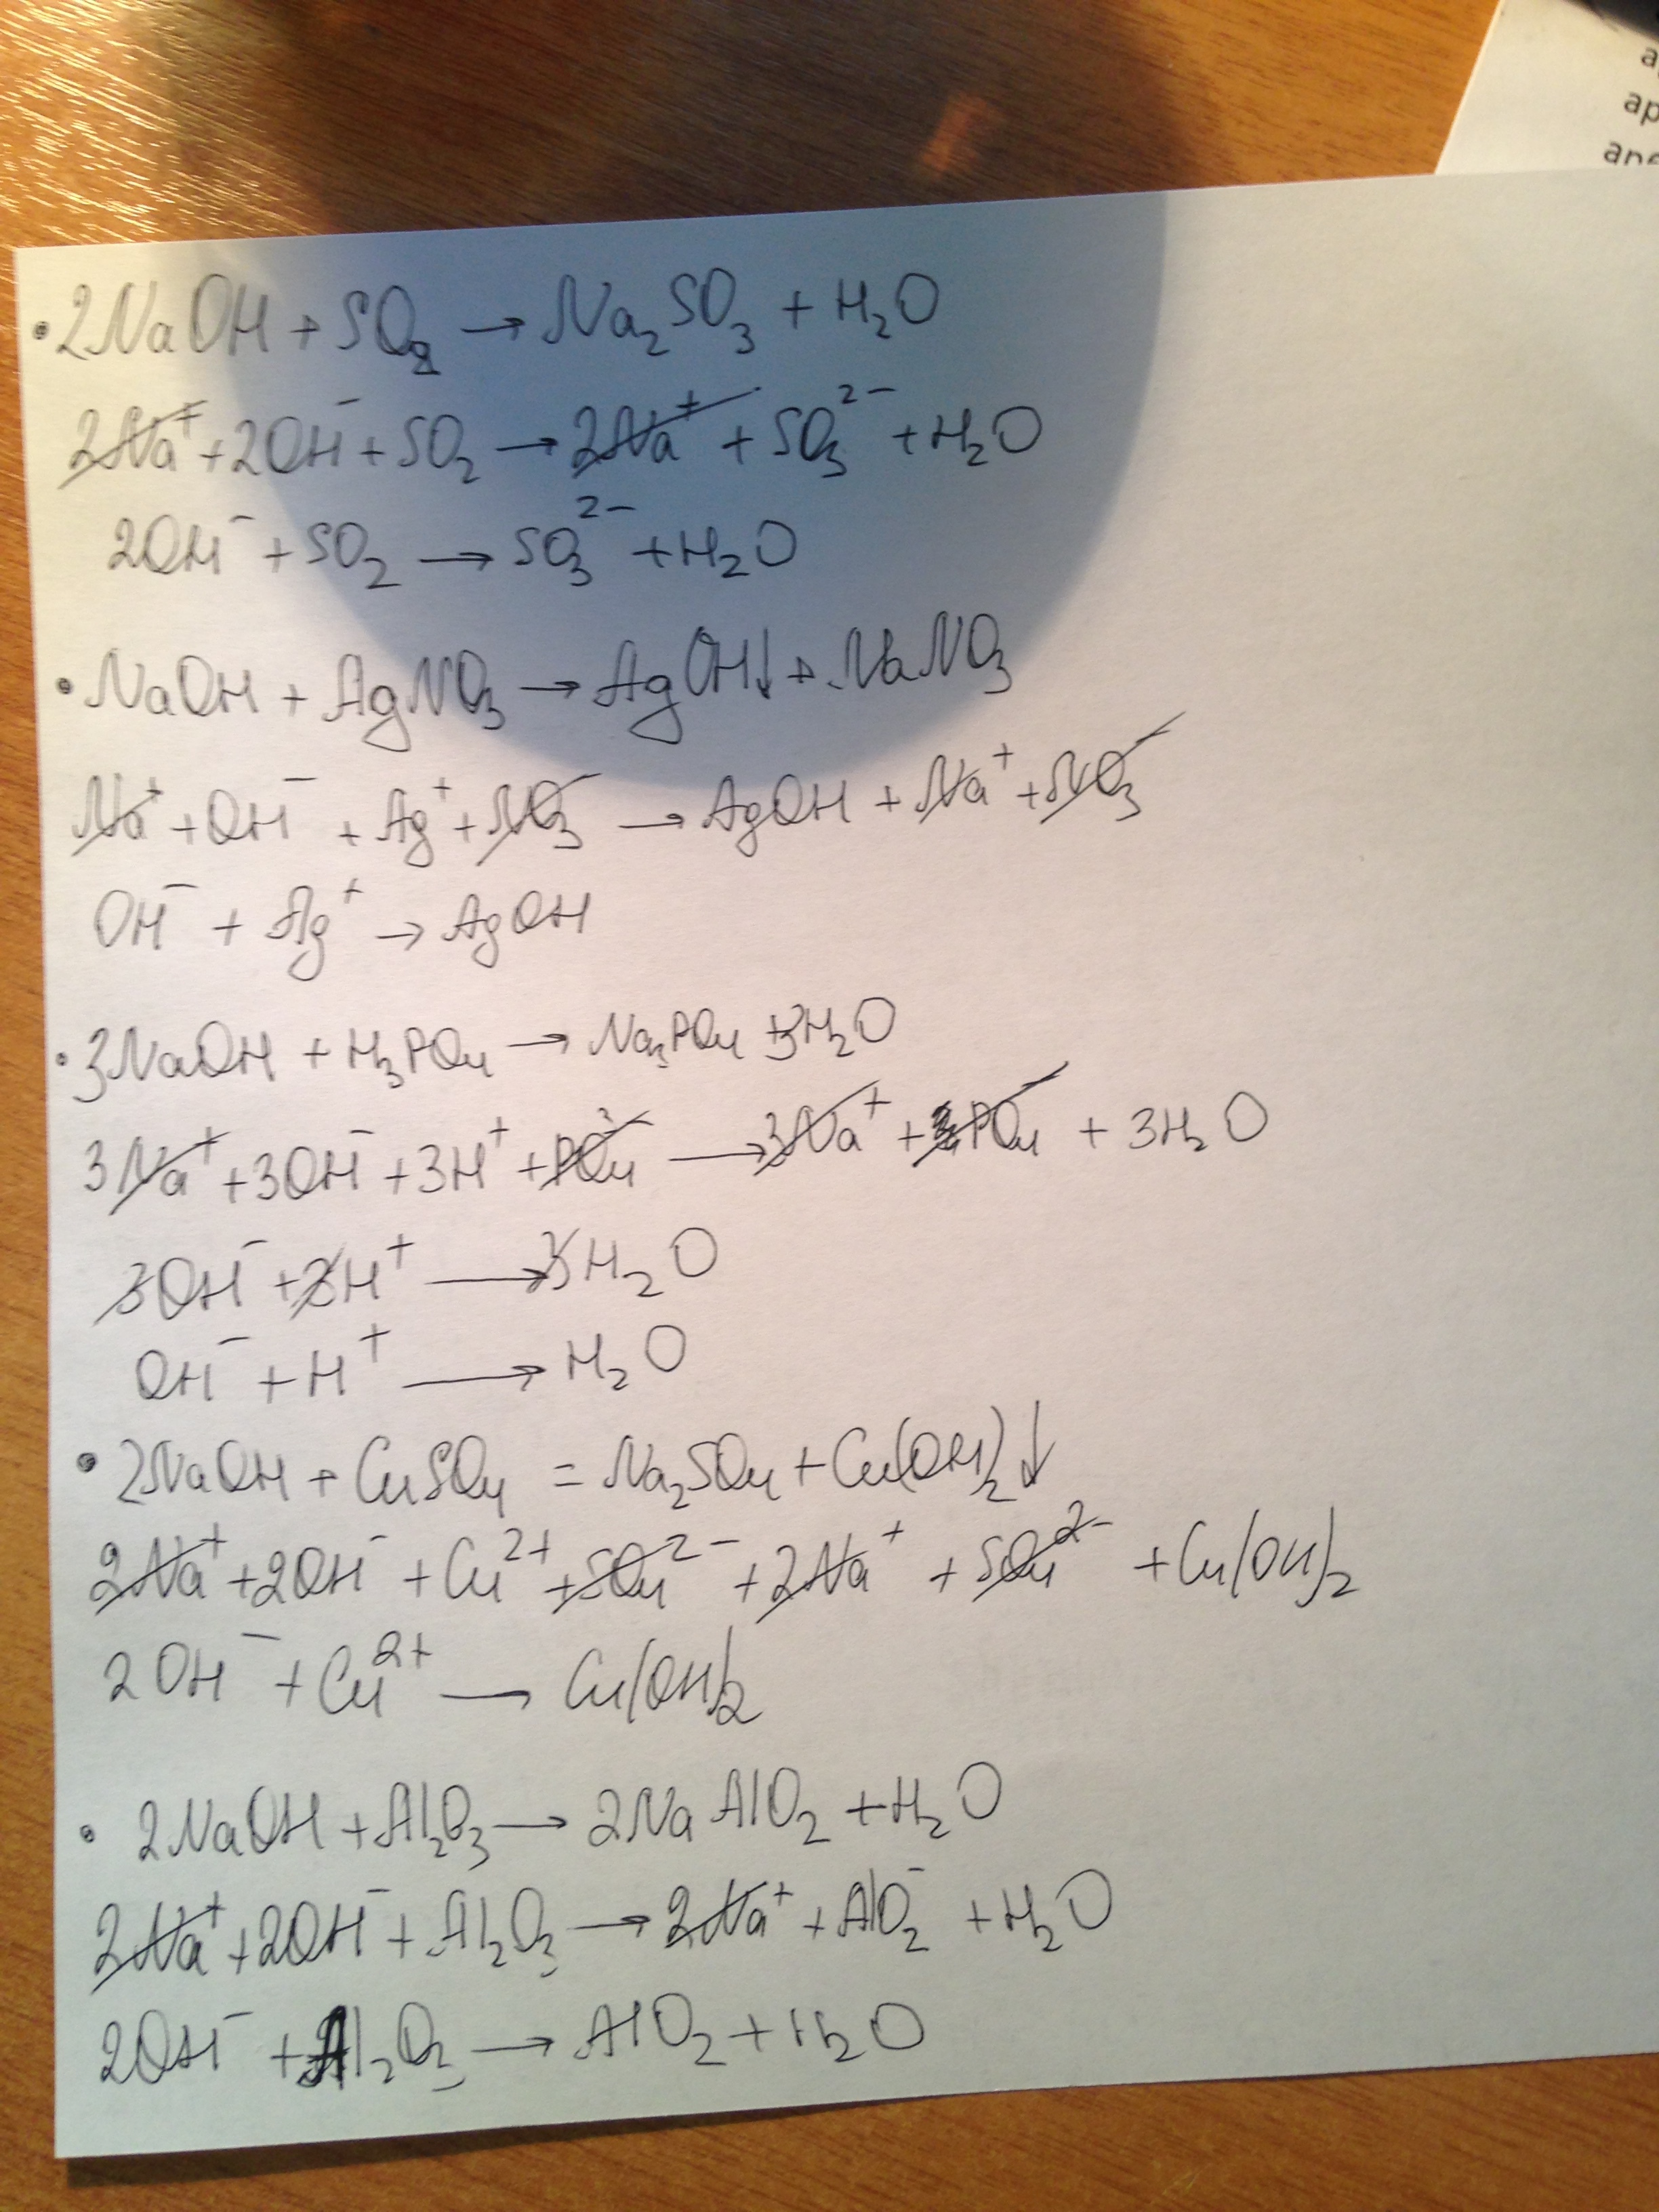 a
ap
ane
• 2NaOH + SO₂ → Na₂SO₃ + H₂O
2Na⁺ + 2OH⁻ + SO₂ → 2Na⁺ + SO₃²⁻ + H₂O
2OH⁻ + SO₂ → SO₃²⁻ + H₂O
• NaOH + AgNO₃ → AgOH↓ + NaNO₃
Na⁺ + OH⁻ + Ag⁺ + NO₃⁻ → AgOH + Na⁺ + NO₃⁻
OH⁻ + Ag⁺ → AgOH
• 3NaOH + H₃PO₄ → Na₃PO₄ + 3H₂O
3Na⁺ + 3OH⁻ + 3H⁺ + PO₄³⁻ → 3Na⁺ + PO₄⁻ + 3H₂O
3OH⁻ + 3H⁺ → 3H₂O
OH⁻ + H⁺ → H₂O
• 2NaOH + CuSO₄ = Na₂SO₄ + Cu(OH)₂↓
2Na⁺ + 2OH⁻ + Cu²⁺ + SO₄²⁻ + 2Na⁺ + SO₄²⁻ + Cu(OH)₂
2OH⁻ + Cu²⁺ → Cu(OH)₂
• 2NaOH + Al₂O₃ → 2NaAlO₂ + H₂O
2Na⁺ + 2OH⁻ + Al₂O₃ → 2Na⁺ + AlO₂⁻ + H₂O
2OH⁻ + Al₂O₃ → AlO₂ + H₂O